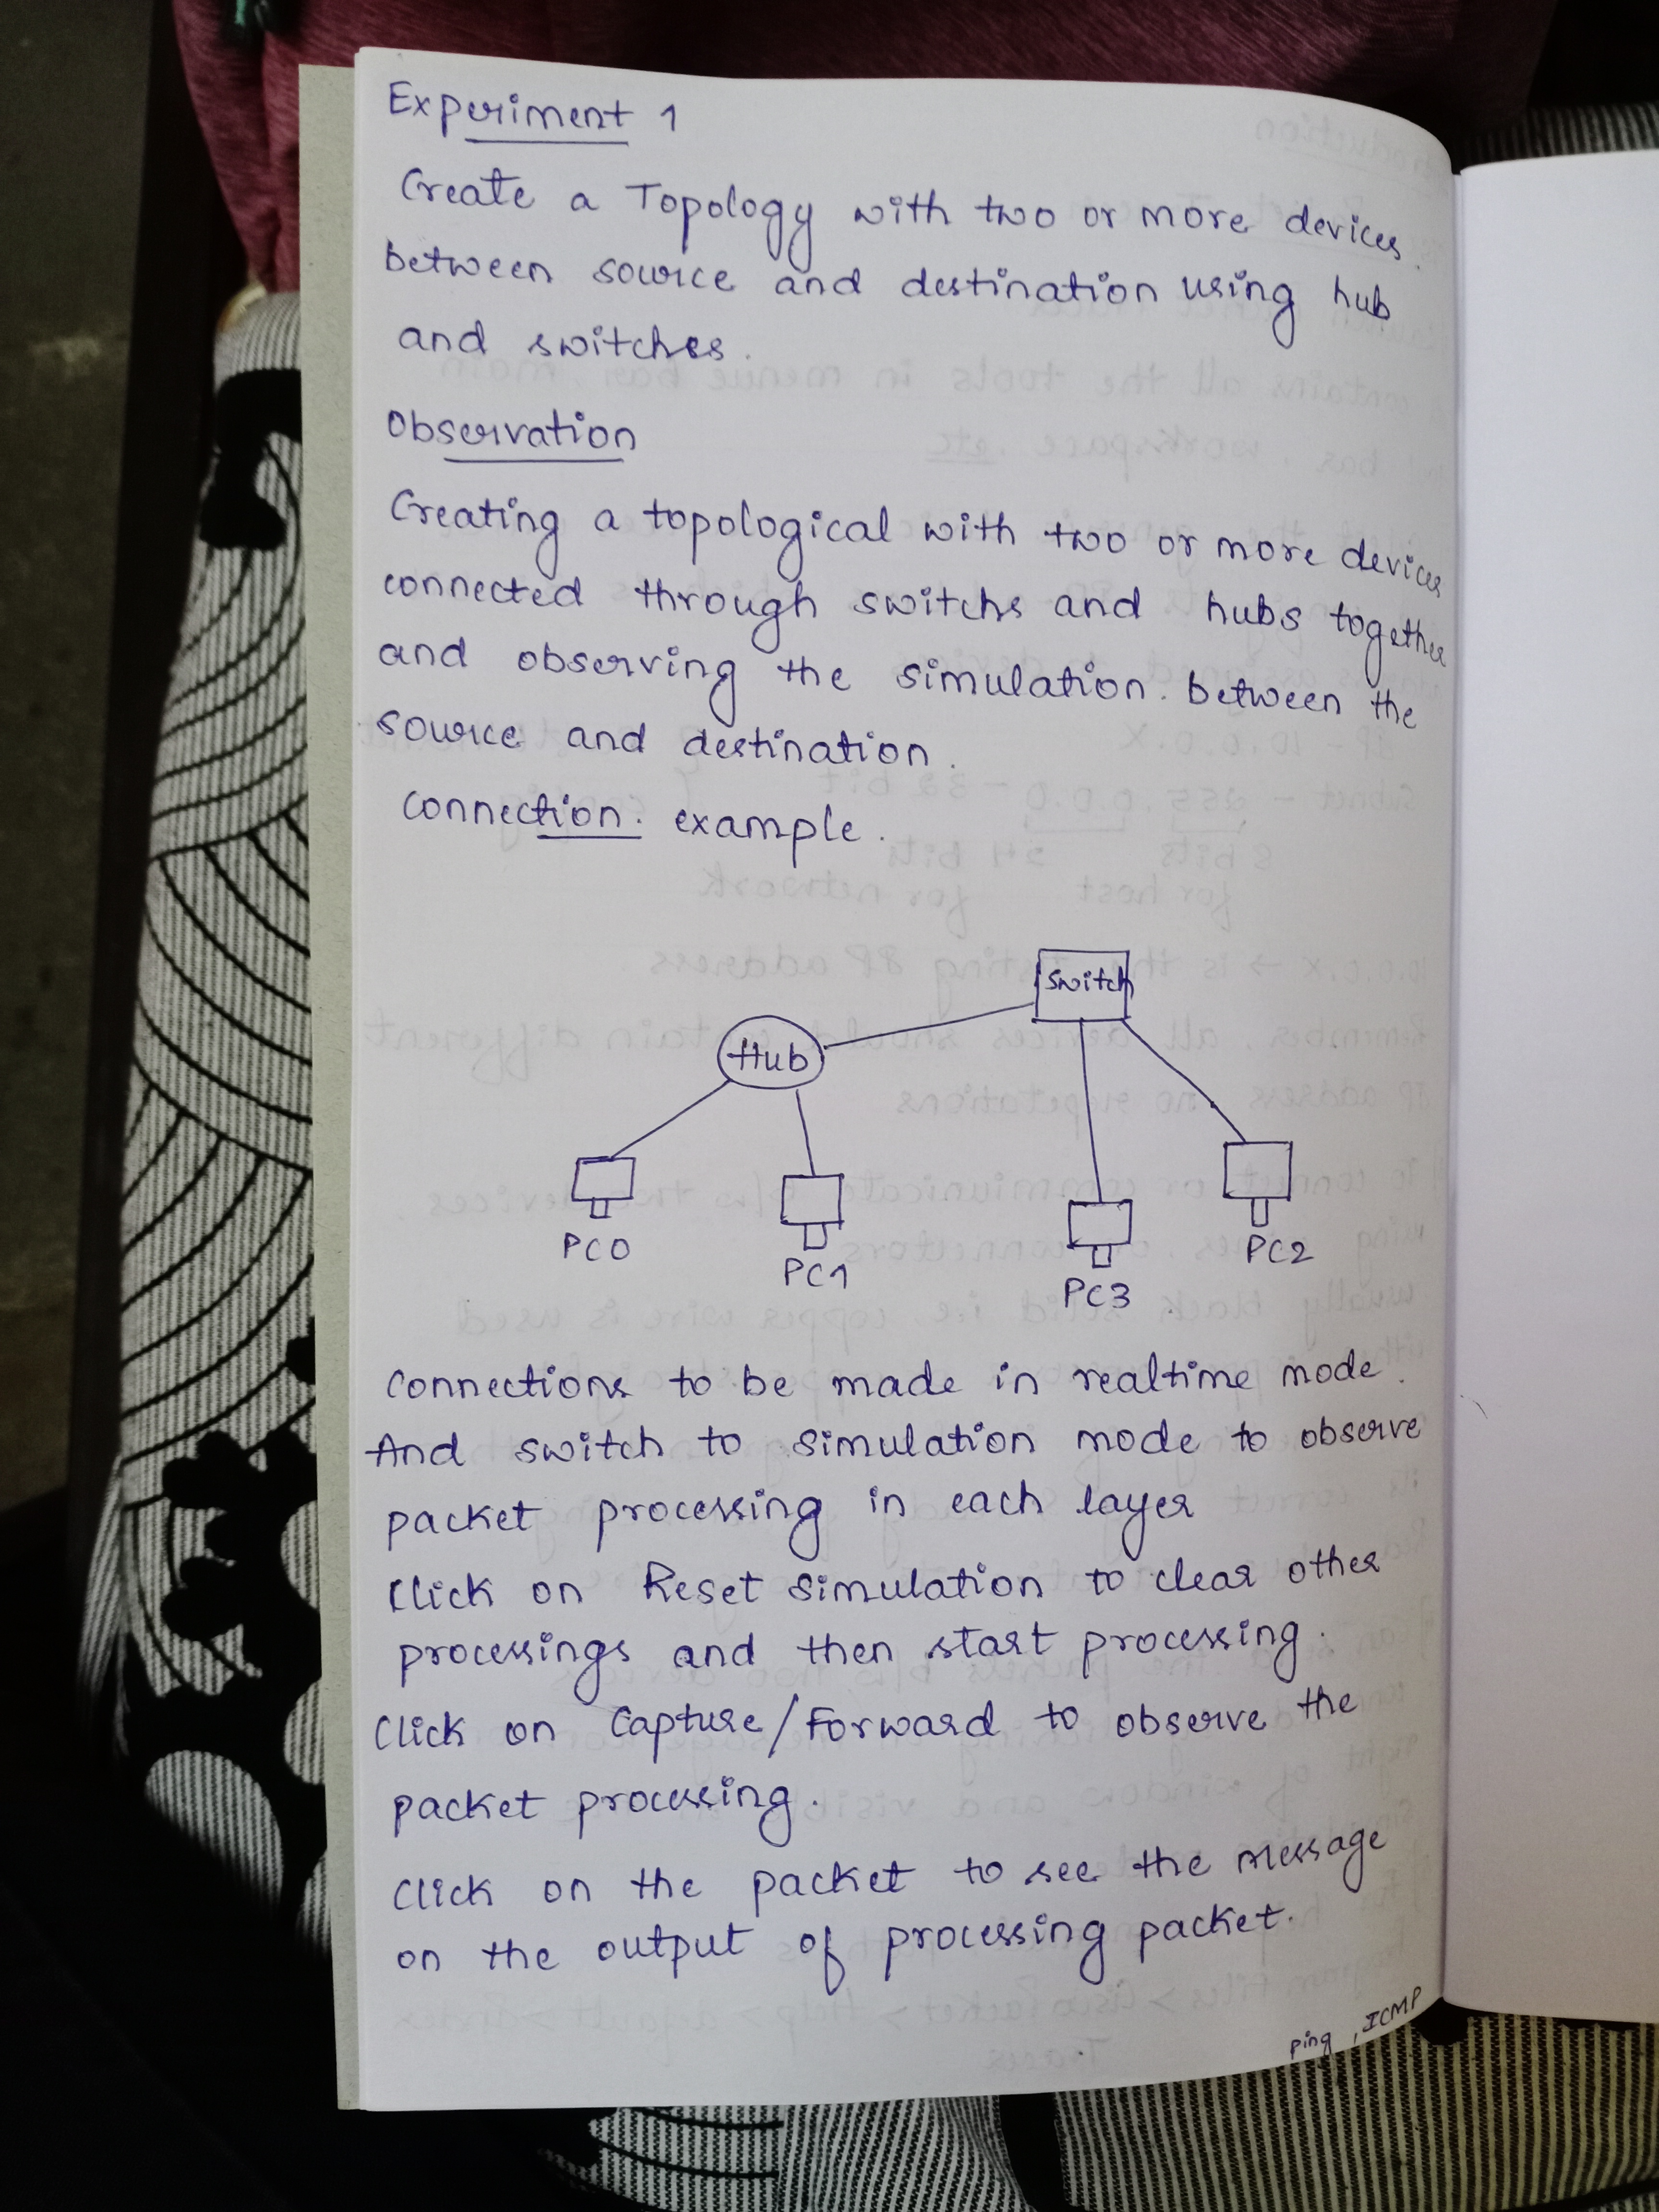 Experiment 1
Create a Topology with two or more devices.
between source and destination using hub
and switches.
Observation
Creating a topological with two or more devices
connected through switchs and hubs together
and observing the simulation. between the
source and destination.
connection. example.
Switch
Hub
PC0
PC1
PC3
PC2
connections to be made in realtime mode.
And switch to simulation mode to observe
packet processing in each layer
Click on Reset simulation to clear other
processings and then start processing.
Click on Capture/Forward to observe the
packet processing.
Click on the packet to see the message
on the output of processing packet.
ping, ICMP